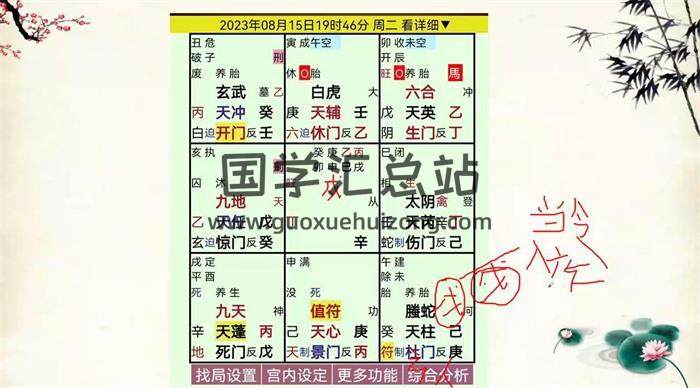 2023年08月15日19时46分 周二 看详细▼
丑危 寅成午空 卯收未空
破子 刑 开辰
废 养胎 休 O 胎 旺 O 养胎 馬
玄武 墓 乙 白虎 大 六合 冲
丙 天冲 癸 庚 天辅 壬 戊 天英 乙
白 迫 开门 反 壬 六 迫 休门 反 辛 阴 生门 反 丁
亥执 癸庚乙丙 巳闭
刑 卯申巳戌
囚 沐 旺 戊 相 生
九地 天 从 太阴 禽 登
乙 天任 戊 丁 蛇 天芮 辛 己
玄 迫 惊门 反 癸 辛 蛇 制 伤门 反 己
国学汇总站
www.guoxuehuizong.com
当令
戌定 申满 午建
平酉 除未
死 养生 没 死 胎 养胎
戊 戊
九天 神 值符 功 螣蛇 河
辛 天蓬 丙 己 天心 庚 癸 天柱 己
地 死门 戊 天 制 景门 反 丙 符 制 杜门 反 庚
找局设置 宫内设定 更多功能 综合分析